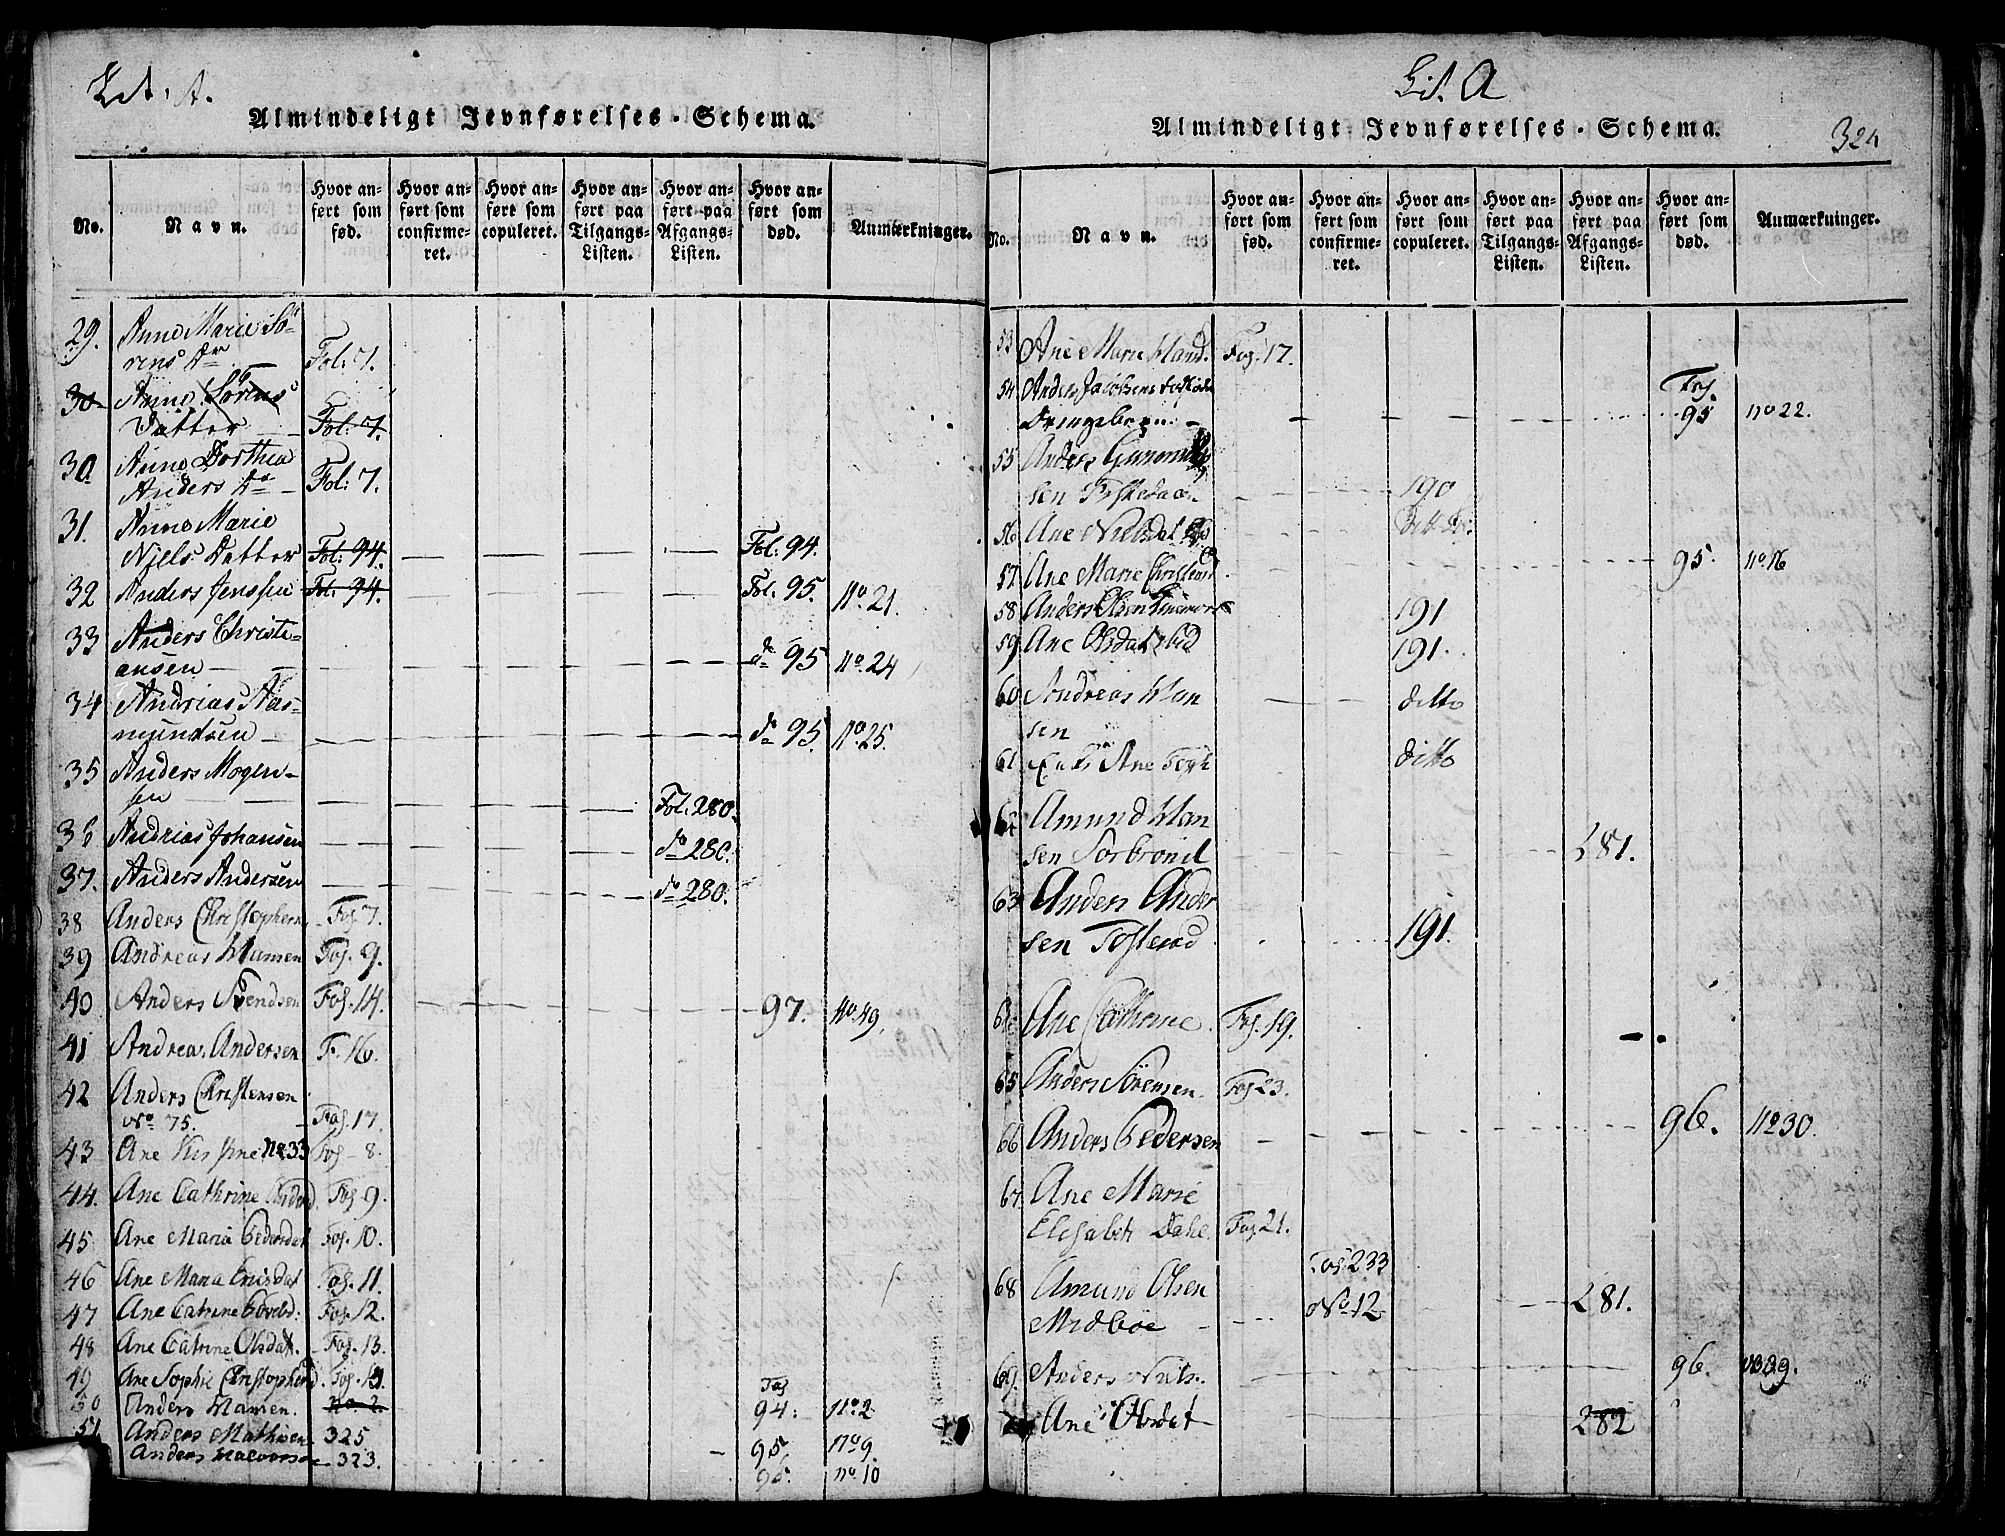 Lit. A.
Almindeligt Jevnførelses-Schema.
No.
Navn.
Hvor anført som fød.
Hvor anført som confirmeret.
Hvor anført som copuleret.
Hvor anført paa Tilgangs-Listen.
Hvor anført paa Afgangs-Listen.
Hvor anført som død.
Anmærkninger.
29. Anne Marie Sö-
rens Dr Fol: 7.
30 Anne Sörens
Datter Fol: 7.
30 Anne Dorthea
Anders Dr Fol: 7.
31. Anne Marie
Njels Datter Fol: 94. Fol. 94.
32 Anders Jenssen Fol. 94. Fol. 95. No. 21.
33 Anders Christi-
ansen do 95 No. 24
34 Andrias Aas-
mundsen do 95. No. 25.
35 Anders Mogen-
sen Fol. 280.
36 Andrias Johansen do 280.
37. Anders Andersen do 280.
38 Anders Christophersen Fol 7.
39 Andreas Fol. 9.
40 Anders Svendsen Fol. 14. 97. No. 49.
41 Andreas Andersen F. 16.
42 Anders Christensen
No 75. Fol. 17.
43 Ane Kirstine No 33 Fol 8.
44. Ane Cathrine Fol 9.
45 Ane Maria Pedersdat Fol. 10.
46 Ane Maria Fol. 11.
47 Ane Catrine Fol. 12.
48 Ane Catrine Olsdat. Fol. 13.
49 Ane Sophie Christophersd. Fol.
50 Anders Hansen. Fol 94. No. 2
51 Anders Mathisen 325 95. No 9.
Anders Halvorsen 323. 95. No. 10
Lit. A
Almindeligt Jevnførelses-Schema.
324
No.
Navn.
Hvor anført som fød.
Hvor anført som confirmeret.
Hvor anført som copuleret.
Hvor anført paa Tilgangs-Listen.
Hvor anført paa Afgangs-Listen.
Hvor anført som død.
Anmærkninger.
53 Ane Marie Hansd. Fol. 17.
54 Anders Jacobsens dødfødte
Drengebarn. Fol. 95 No 22.
55 Anders Gunder
sen 190
56 Ane Nielsdat ditto
57 Ane Marie Christensd. 95. No. 16
58 Anders Olsen 191
59 Ane Olsdat ibid 191.
60 Andreas Han
sen ditto
61 Ane ditto
62 Amund Han
sen Sorbrönd 281.
63 Anders Ander
sen 191.
64 Ane Cathrine. Fol. 19.
65 Anders Sörensen. Fol 23.
66 Anders Pedersen 96. No 30.
67 Ane Marie
Elisabeth Dahl Fol 21.
68 Amund Olsen Fol. 233
Midböe No 12 281.
69. Anders Niels. 96. No 39.
Ane Olsdat 282